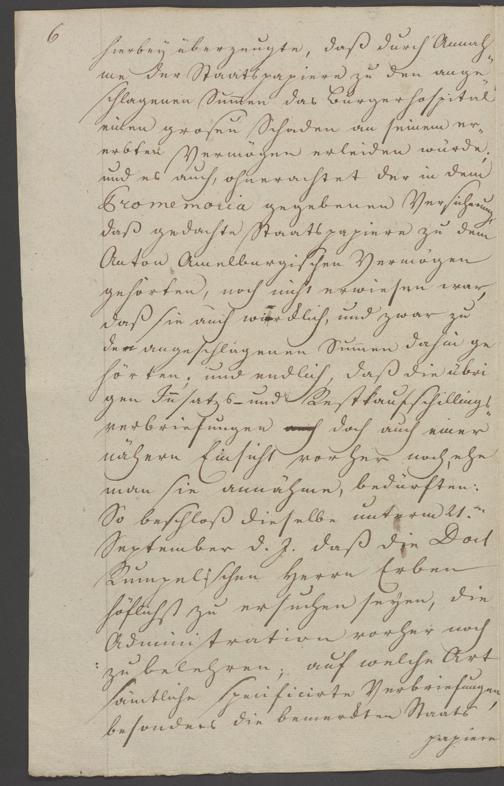 6
hierbey überzeugte, daß durch Annah„
me der Staatspapiere zu den ange„
schlagenen Sum̅en das Bürgerhospital
einen grosen Schaden an seinem er„
erbten Vermögen erleiden würde,
und es auch, ohnerachtet der in dem
Promemoria gegebenen Versicherung
daß gedachte Staatspapiere zu dem
Anton Amelburgischen Vermögen
gehörten, noch nicht erwiesen war,
daß sie auch würcklich, und zwar zu
den angeschlagenen Sum̅en dahin ge
hörten; und endlich, daß die übri
gen Insatz- und Restkaufschillings
verbriefungen doch auch einer
nähern Einsicht vorher noch, ehe
man sie annähme, bedürften:
So beschloß dieselbe unterm 21.ⁿ
September d. J. daß die Doct
Rumpelischen Herrn Erben
höflichst zu ersuchen seyen, die
Administration vorher noch
zu belehren; auf welche Art
sämtliche specificirte Verbriefungen,
besonders die bemerckten Staats
papiere